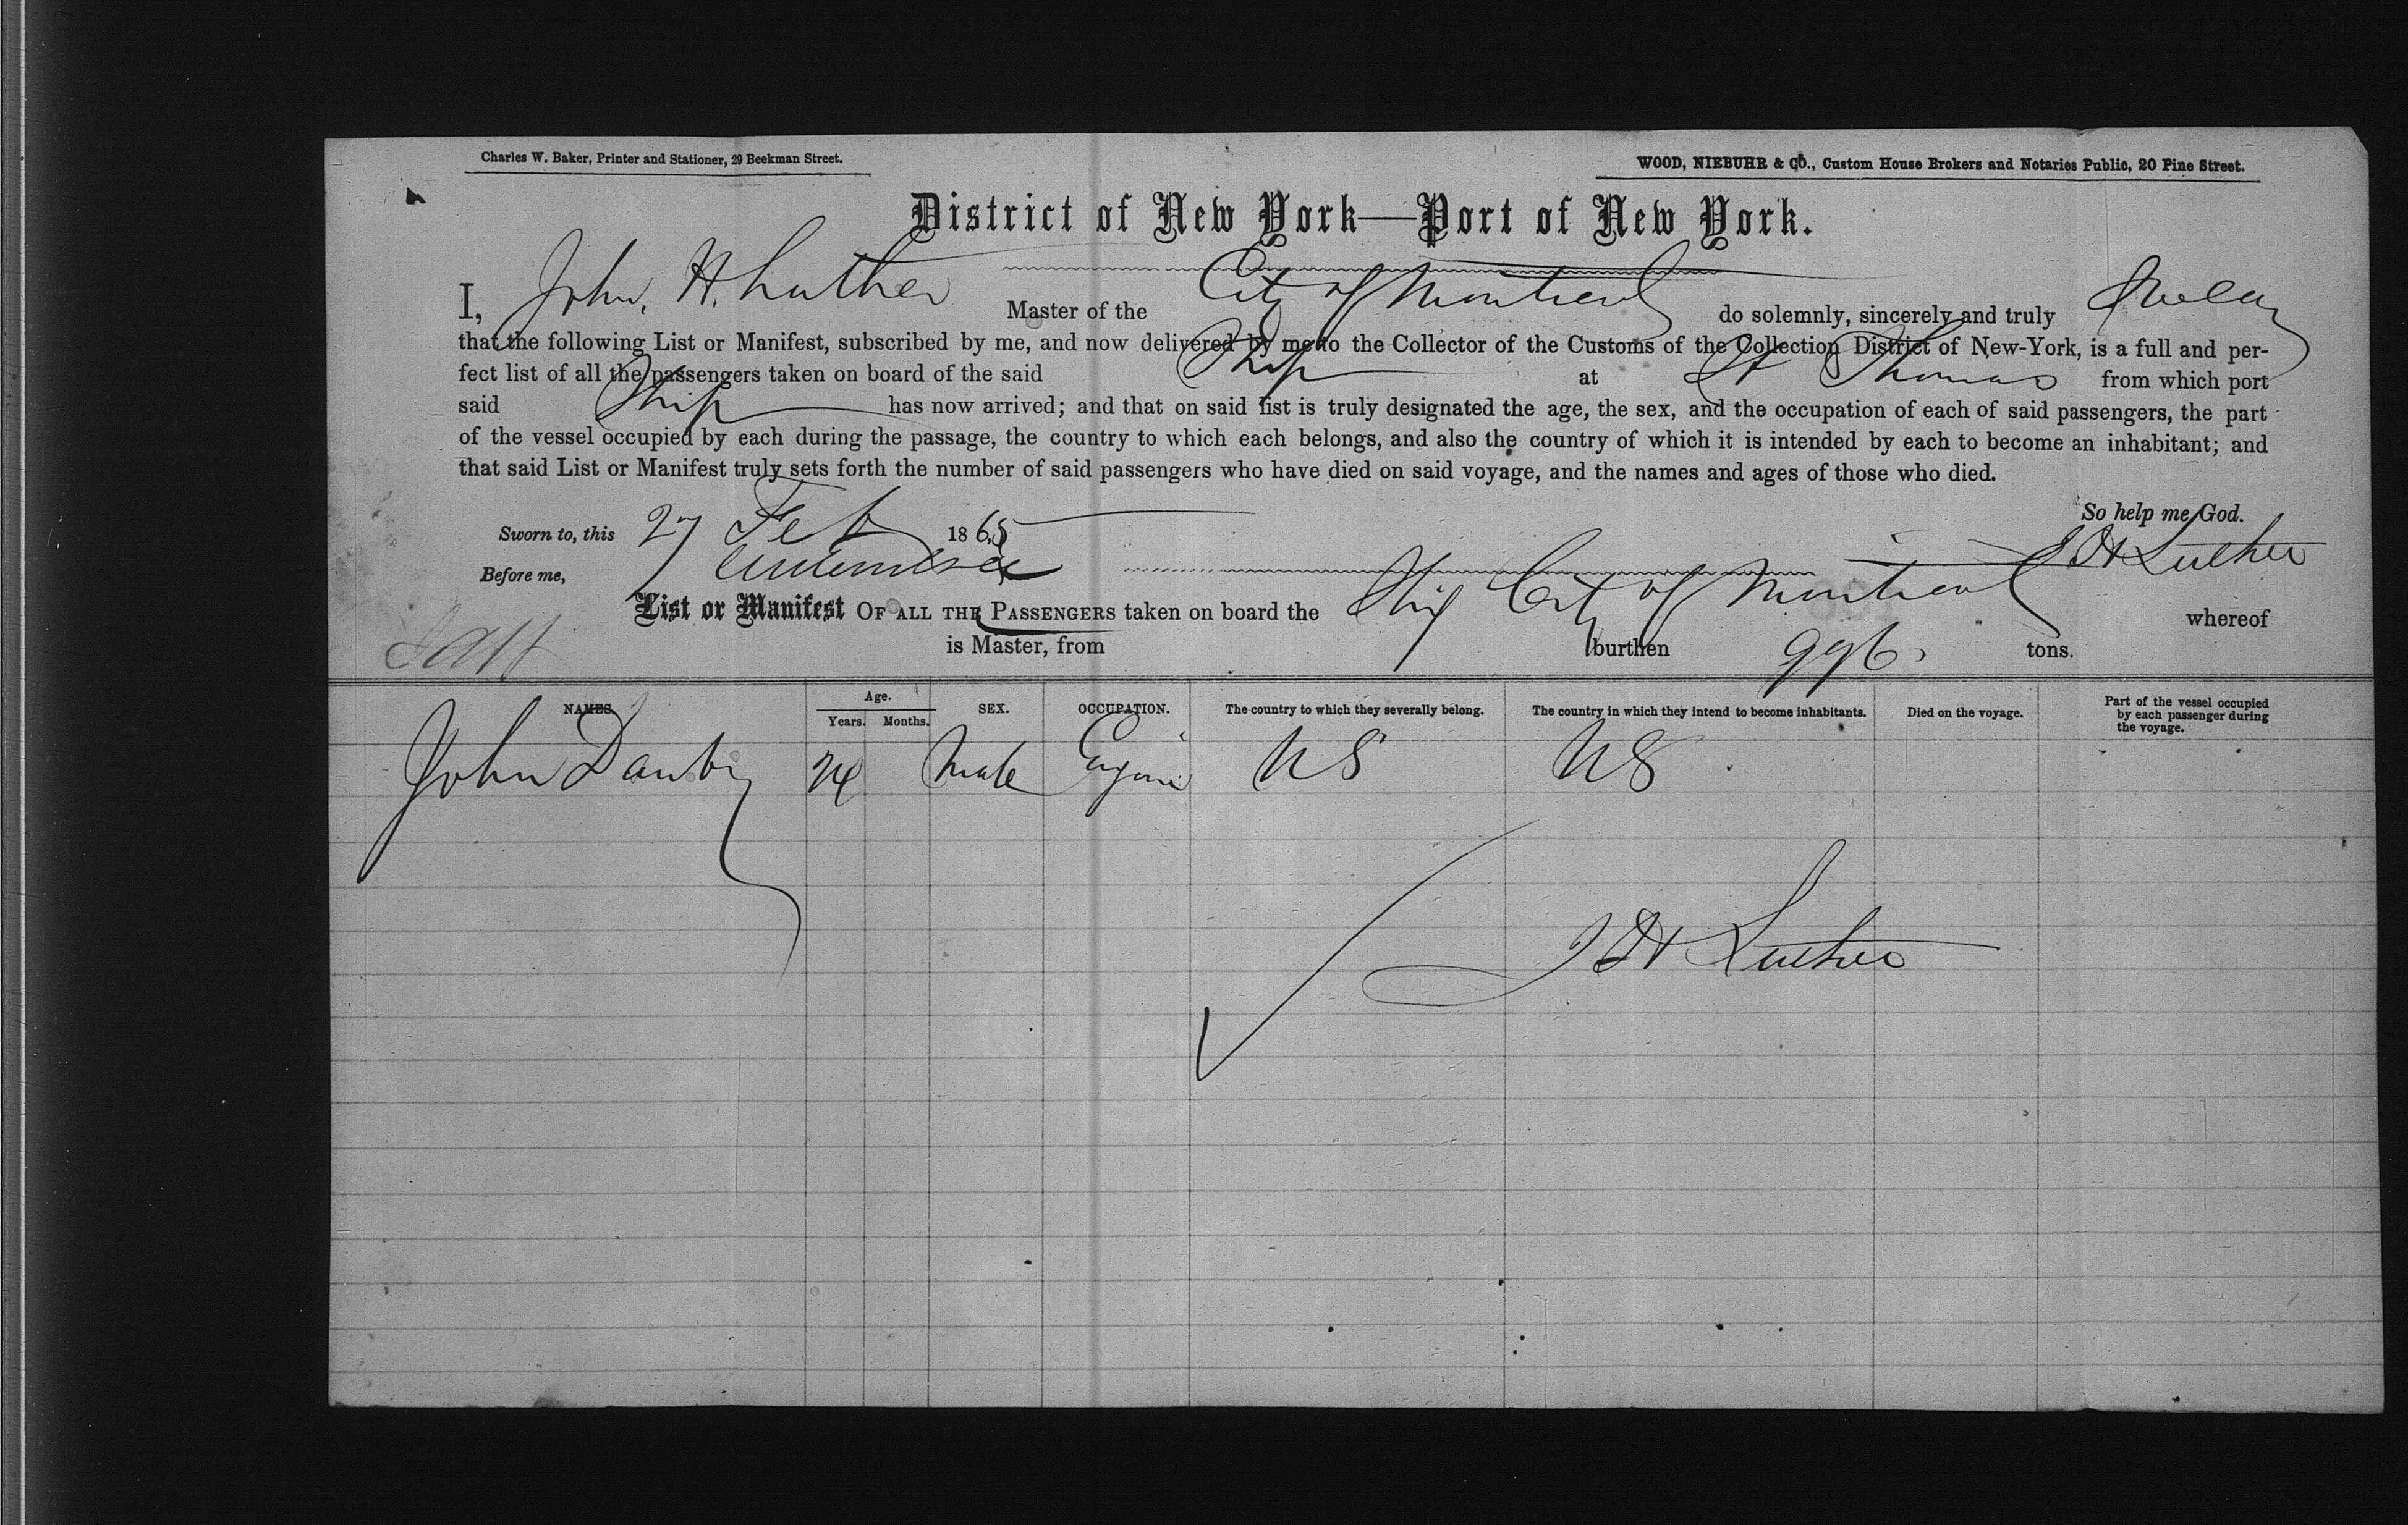 Charles W. Baker, Printer and Stationer, 29 Beekman Street.
WOOD, NIEBUHR & CO., Custom House Brokers and Notaries Public, 20 Pine Street.
District of New York—Port of New York.
I, John, H. Luther Master of the City of Montreal do solemnly, sincerely and truly Swear
that the following List or Manifest, subscribed by me, and now delivered by me to the Collector of the Customs of the Collection District of New-York, is a full and per-
fect list of all the passengers taken on board of the said Ship at St Thomas from which port
said Ship has now arrived; and that on said list is truly designated the age, the sex, and the occupation of each of said passengers, the part
of the vessel occupied by each during the passage, the country to which each belongs, and also the country of which it is intended by each to become an inhabitant; and
that said List or Manifest truly sets forth the number of said passengers who have died on said voyage, and the names and ages of those who died.
So help me God.
Sworn to, this 27 Feb 1865 J H Luther
Before me,
List or Manifest OF ALL THE PASSENGERS taken on board the Ship City of Montreal whereof
is Master, from burthen 996 tons.
NAMES. Age. Years. Months. SEX. OCCUPATION. The country to which they severally belong. The country in which they intend to become inhabitants. Died on the voyage. Part of the vessel occupied by each passenger during the voyage.
John Danby 24 Male US US
J H Luther